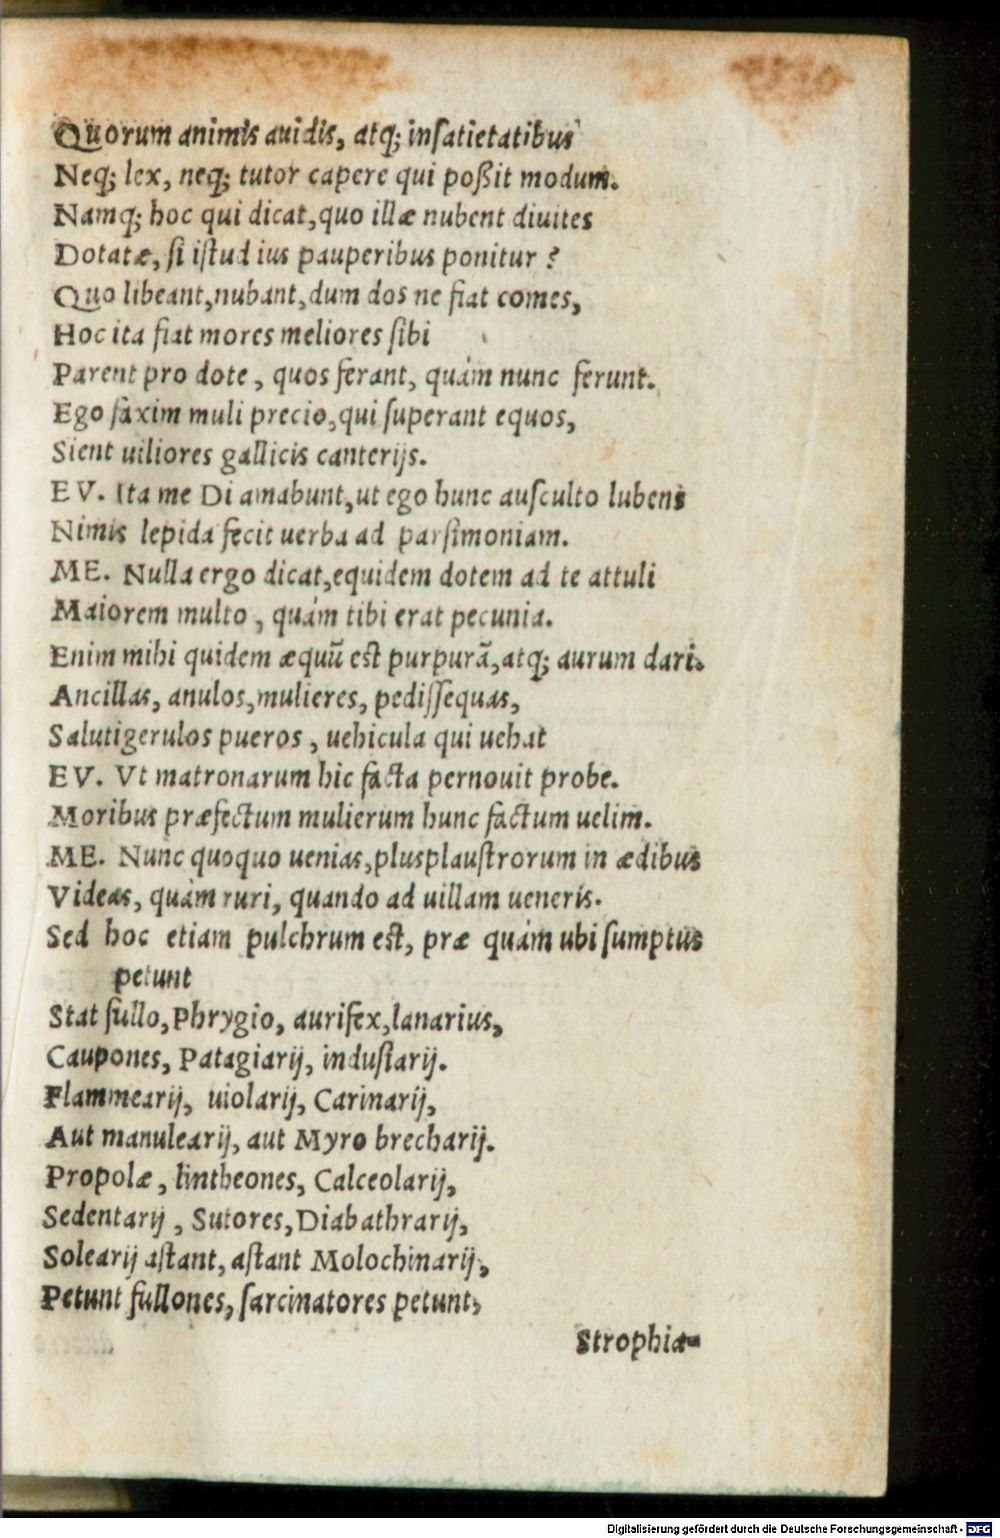 Quorum animis auidis, atq; inſatietatibus
Neq; lex, neq; tutor capere qui poßit modum.
Namq; hoc qui dicat,quo illæ nubent diuites
Dotatæ, ſi iſtud ius pauperibus ponitur ?
Quo libeant,nubant,dum dos ne fiat comes,
Hoc ita fiat mores meliores ſibi
Parent pro dote, quos ferant, quàm nunc ferunt.
Ego faxim muli precio,qui ſuperant equos,
Sient uiliores gallicis canterijs.
EV. Ita me Di amabunt,ut ego hunc auſculto lubens
Nimis lepida fecit uerba ad parſimoniam.
ME. Nulla ergo dicat,equidem dotem ad te attuli
Maiorem multo, quàm tibi erat pecunia.
Enim mihi quidem æquũ eſt purpurã,atq; aurum dari.
Ancillas, anulos,mulieres, pediſſequas,
Salutigerulos pueros, uehicula qui uehat
EV. Vt matronarum hic facta pernouit probe.
Moribus præfectum mulierum hunc factum uelim.
ME. Nunc quoquo uenias,plusplauſtrorum in ædibus
Videas, quàm ruri, quando ad uillam ueneris.
Sed hoc etiam pulchrum eſt, præ quàm ubi ſumptus
petunt
Stat fullo,Phrygio, aurifex,lanarius,
Caupones, Patagiarij, induſiarij.
Flammearij, uiolarij, Carinarij,
Aut manulearij, aut Myro brecharij.
Propolæ, lintheones, Calceolarij,
Sedentarij, Sutores,Diabathrarij,
Solearij aſtant, aſtant Molochinarij,
Petunt fullones, ſarcinatores petunt,
Strophia-
Digitalisierung gefördert durch die Deutsche Forschungsgemeinschaft - DFG